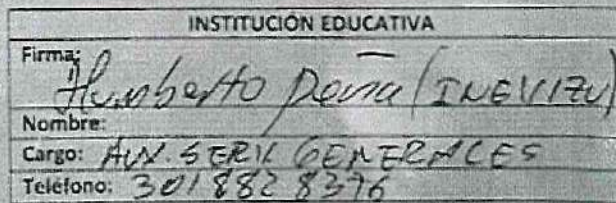 INSTITUCIÓN EDUCATIVA
Firma:
Humberto Peña (INEVIZU)
Nombre:
Cargo: AUX. SERV GENERALES
Teléfono: 301 882 8376